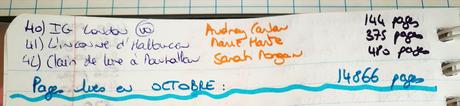 40) IG London 10 Audrey Carlan 144 pages
41) L'inconnu d'Halloween Marie Harte 375 pages
42) Clair de lune à Manhattan Sarah Morgan 480 pages
Pages lues en OCTOBRE : 14866 pages